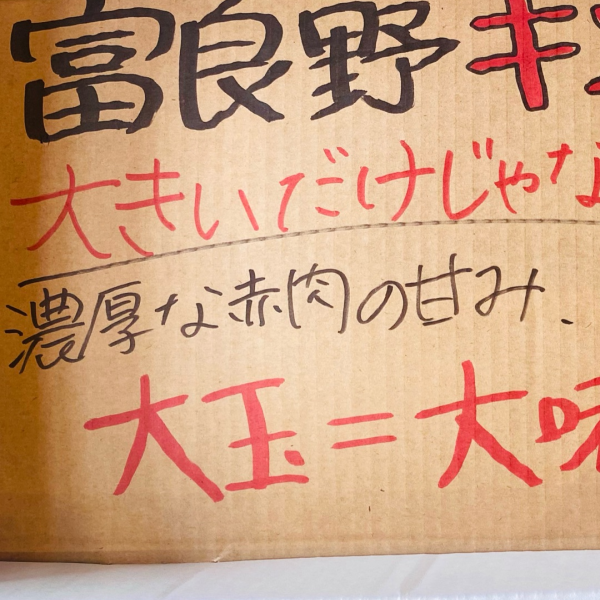 富良野キ
大きいだけじゃな
濃厚な赤肉の甘み.
大玉=大味